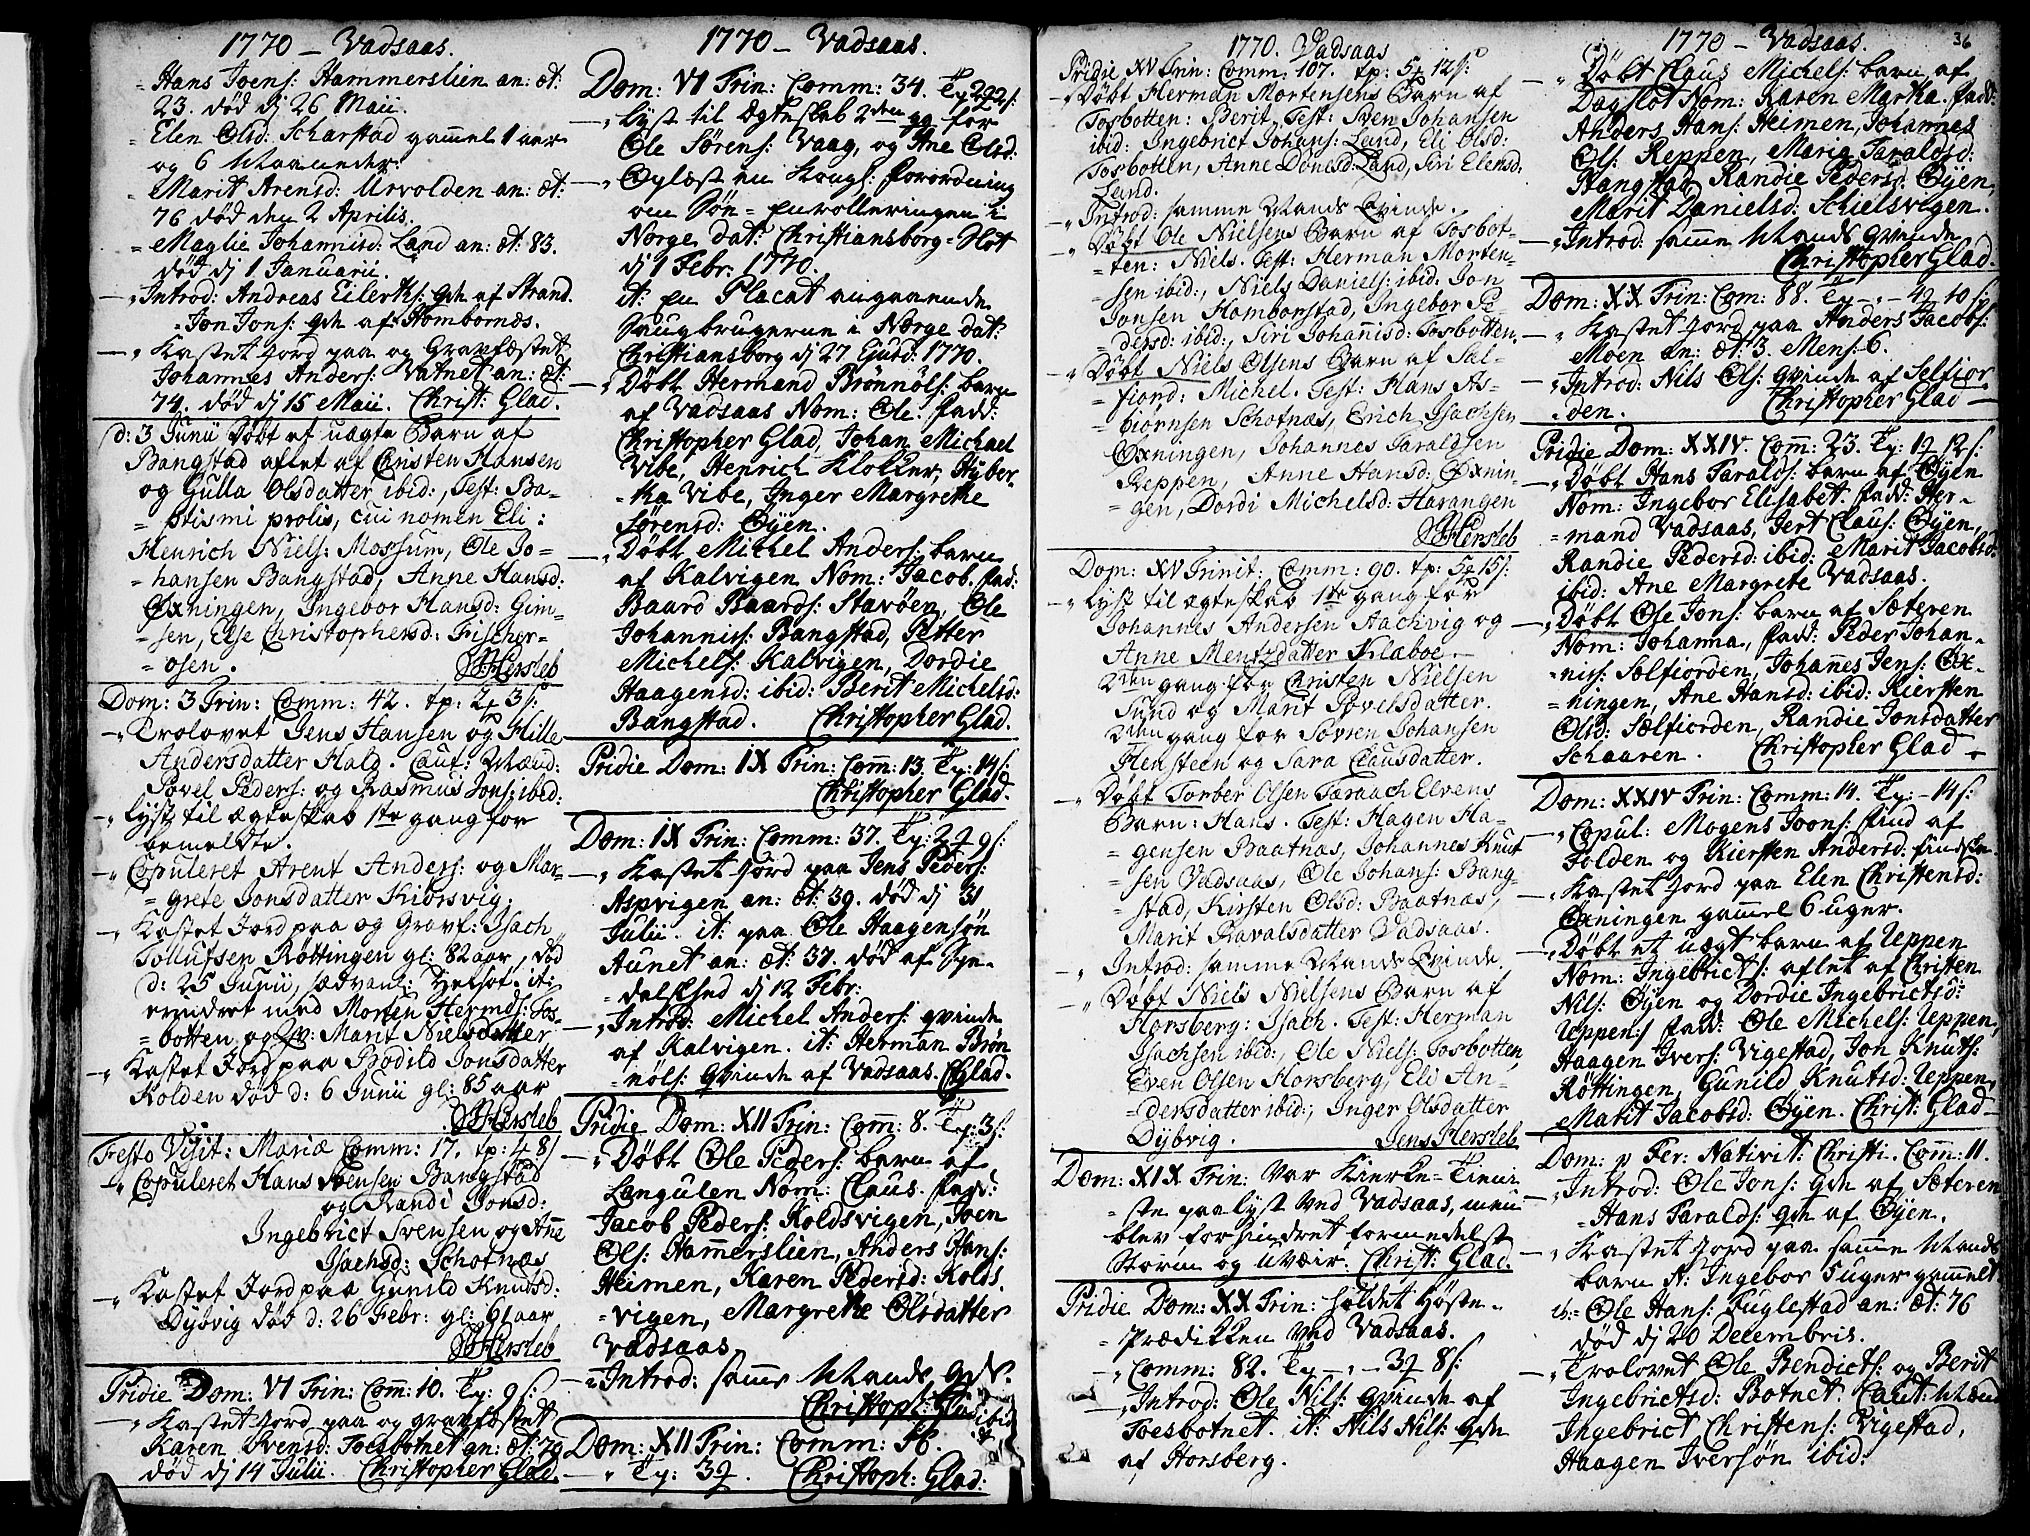 1770 – Vadsaas.
= Hans Joens: Hammerslien an: æt:
23. død dj 26 Maii.
= Elen Olsd: Scharstad gamel 1 aar
og 6 Maaneder.
= Marit Arensd: Urvolden an: æt:
76 død den 2 Aprilis.
= Maglie Johannisd: Land an: æt: 83.
død dj 1 Januarii.
– „ Introd: Andreas Eilerths: qde af Strand.
= Jon Jons: qde af Hombornæs.
– „ Kastet Jord paa og Gravfæstet
Johannes Anders: Vatnet an: æt:
74. død dj 15 Maii. Christ: Glad.
d: 3 Junii Døbt et uægte Barn af
Bangstad aflet af Christen Hansen
og Gulla Olsdatter ibid:, Test: Ba=
= ptismi prolis, cui nomen Eli:
Henrich Niels: Mossum, Ole Jo=
= hansen Bangstad, Anne Hansd:
Øxningen, Ingebor Hansd: Gim=
= sen, Else Christophersd: Fischer=
= osen. JHersleb
Dom: 3 Trin: Comm: 42. tp: 2 3 s:
– „ Trolovet Jens Hansen og Hille
Andersdatter Hald. Cauf: Mænd:
Povel Peders: og Rasmus Jons: ibid:
– „ Lyst til ægteskab 1te gang for
bemeldte.
– „ Copuleret Arent Anders: og Mar=
= grete Jonsdatter Kibsvig.
– „ Kastet Jord paa og Gravf: Isach
Tollufsen Røttingen gl: 82 aar, død
d: 25 Junii, sædvanl:
erindret med Morten Hermds: Tos=
= botten og Marit Nielsdatter
– „ Kastet Jord paa Bodild Jonsdatter
Kolden død d: 6 Junii gl: 85 aar
JHersleb
Festo Visit: Mariæ Comm: 17. tp: 4 8 s
– „ Copuleret Hans Joensen Bangstad
og Randi Jonsd:
Ingebrict Svensen og Ane
Isachsd: Schotnæs
– „ Kastet Jord paa Gunild Knudsd:
Dybvig død d: 26 Febr: gl: 61 aar
JHersleb
Pridie Dom: VI Trin: Com: 10. Tp: 9 s:
– „ Kastet Jord paa og gravfæstet
Karen Svensd: Toesbotnet an: æt: 79
død dj 14 Julii. Christopher Glad.
1770 – Vadsaas.
Dom: VI Trin: Comm: 34. Tp
– „ Lyst til Ægteskab 2den gg. for
Ole Sørens: Vaag, og Ane Olsd:
– „ Oplæst en Kongl: forordning
om Søn= Enrolleringen i
Norge dat: Christiansborg=Slot
dj 1 Febr. 1770.
it: en Placat angaaende
Saugbrugerne i Norge dat:
Christiansborg dj 27 Ejusd: 1770.
– „ Døbt Hermand Brønnøls: barn
af Vadsaas Nom: Ole. fadd:
Christopher Glad, Johan Michael
Vibe, Henrich Klokker, Hyber=
= tha Vibe, Inger Margrethe
Sørensd: Øyen.
– „ Døbt Michel Anders: barn
af Kalvigen Nom: Jacob. fad:
Baard Baards: Stavøen, Ole
Johannis: Bangstad, Petter
Michels: Kalvigen, Dordie
Haagensd: ibid: Berit Michelsd:
Bangstad. Christopher Glad.
Pridie Dom: IX Trin: Com: 13. Tp: 14 s:
Christopher Glad.
Dom: IX Trin: Comm: 37. Tp: 2 9 s:
– „ Kastet Jord paa Jens Peders:
Aspvigen an: æt: 39. død dj 31
Julii. it: paa Ole Haagensøn
Aunet an: æt: 37. død af Spe=
= dalskhed dj 12 Febr:
– „ Introd: Michel Anders: qvinde
af Kalvigen. it: Herman Brøn
= nøls: qvinde af Vadsaas. CGlad.
Pridie Dom: XII Trin: Com: 8. Tp: 3 s:
– „ Døbt Ole Peders: barn af
Langulen Nom: Claus. fadd:
Jacob Peders: Koldsvigen, Joen
Ols: Hammerslien, Anders Hans:
Heimen, Karen Pedersd: Kolds=
= vigen, Margrethe Olsdatter
Vadsaas
– „ Introd: same Mands qde.
Christoph: Glad
Dom: XII Trin: Comm: 56.
– „ Tp: 3 . Christoph: Glad.
1770. Vadsaas
Pridie XV Trin: Comm: 107. tp: 5 12 s:
– „ Døbt Herman Mortensens Barn af
Tosbotten: Berit. Test: Sven Johansen
ibid: Ingebrict Johans: Land, Eli Olsd:
Tosbotten, Anne Donisd: Land, Siri Elensd:
Land.
– „ Introd: samme Mands Qvinde.
– „ Døbt Ole Nielsens Barn af Tosbot=
= ten: Niels. Test: Herman Morten=
= sen ibid:, Niels Daniels: ibid. Jon
Jonsen Hombornstad, Ingebor Pe=
= dersd: ibid:, Siri Johanisd: Tosbotten.
– „ Døbt Niels Olsens Barn af Sal=
= fiord: Michel. Test: Hans As=
= biørnsen Schotnæs, Erich Isachsen
Øxningen, Johannes Taraldsen
Reppen, Anne Hansd: Øxnin=
= gen, Dordi Michelsd: Havangen
JHersleb
Dom: XV Trinit: Comm: 90. tp: 5 15 s:
– „ Lyst til ægteskab 1te gang for
Johannes Andersen Aachvig og
Anne Mentzdatter Klaboe –
2den gang for Christen Nielsen
Sund og Marit Povelsdatter.
2den gang for Søvren Johansen
Hensteen og Sara Clausdatter.
– „ Døbt Torber Olsen Taraach Elvens
Barn: Hans. Test: Hagen Ha=
= gensen Baatnæs, Johannes Knut
= sen Vadsaas, Ole Johans: Bang=
= stad, Kirsten Olsd: Baatnas,
Marit Pavalsdatter Vadsaas.
– „ Introd: samme Mands Qvinde.
– „ Døbt Niels Nielsens Barn af
Horsberg: Isach. Test: Herman
Isachsen ibid:, Ole Niels: Tosbotten,
Even Olsen Horsberg, Eli An=
= dersdatter ibid:, Inger Olsdatter
Dybvig. Jens Hersleb
Dom: XIX Trin: Var Kierke=Tieni=
= ste paalyst ved Vadsaas, men
blev forhindret formedelst
Storm og uveir. Christ: Glad.
Pridie Dom: XX Trin: holdet Høste=
= Prædikken ved Vadsaas.
– „ Comm: 82. Tp – „ – 3 8 s:
– „ Introd: Ole Nils: qvinde af
Toesbotnet. it: Nils Nils: qde
af Horsberg.
1770 – Vadsaas. 36
– „ Døbt Claus Michels: barn af
Dagslot Nom: Karen Martha. fadd:
Anders Hans: Heimen, Johannes
Ols: Reppen, Maria Taraldsd:
Hangstad, Randie Pedersd: Øyen,
Marit Danielsd: Schielsvigen.
– „ Introd: same Mands qvinde
Christopher Glad.
Dom: XX Trin: Com: 88. Tp – „ – 4 10 s:
– „ Kastet Jord paa Anders Jacobs:
Moen an: æt: 3. Mens: 6.
– „ Introd: Nils Ols: qvinde af Selfior=
= den. Christopher Glad –
Pridie Dom: XXIV. Com: 23. Tp: 1 12 s:
– „ Døbt Hans Taralds: barn af Øyen
Nom: Ingebor Elisabet. fadd: Her=
= mand Vadsaas, Gert Claus: Øyen,
Randie Pedersd: ibid: Marit Jacobsd:
ibid: Ane Margrete Vadsaas.
– „ Døbt Ole Jons: barn af Sæteren
Nom: Johanna, fadd: Peder Johan=
= nis: Sælfiorden, Johannes Jens: Øx=
= ningen, Ane Hansd: ibid: Kiersten
Olsd: Sælfiorden, Randie Jonsdatter
Schaaren. Christopher Glad –
Dom: XXIV Trin: Comm: 14. Tp: – 14 s:
– „ Copul: Mogens Joons: find af
Folden og Kiersten Andersd: findske
– „ Kastet Jord paa Elen Christensd:
Øxningen gammel 6 uger.
– „ Døbt et uægt barn af Ueppen
Nom: Ingebricts: aflet af Christen
Nils: Øyen og Dordie Ingebrictsd:
Ueppen; fadd: Ole Michels: Ueppen,
Haagen Ivers: Vigestad, Jon Knuts:
Røttingen, Gunild Knutsd: Ueppen,
Marit Jacobsd: Øyen. Christ: Glad –
Dom: p Fer: Nativit: Christi. Com: 11.
– „ Introd: Ole Jons: qde af Sæteren
= Hans Taralds: qde af Øyen.
– „ Kastet Jord paa samme Mands
barn N: Ingebor 5 uger gammelt
it: Ole Hans: Fuglestad an: æt: 76
død dj 20 Decembris.
– „ Trolovet Ole Bendicts: og Berit
Ingebrictsd: Botnet. Caut: Mænd
Ingebrict Christens: Vigestad,
Haagen Iversøn ibid: